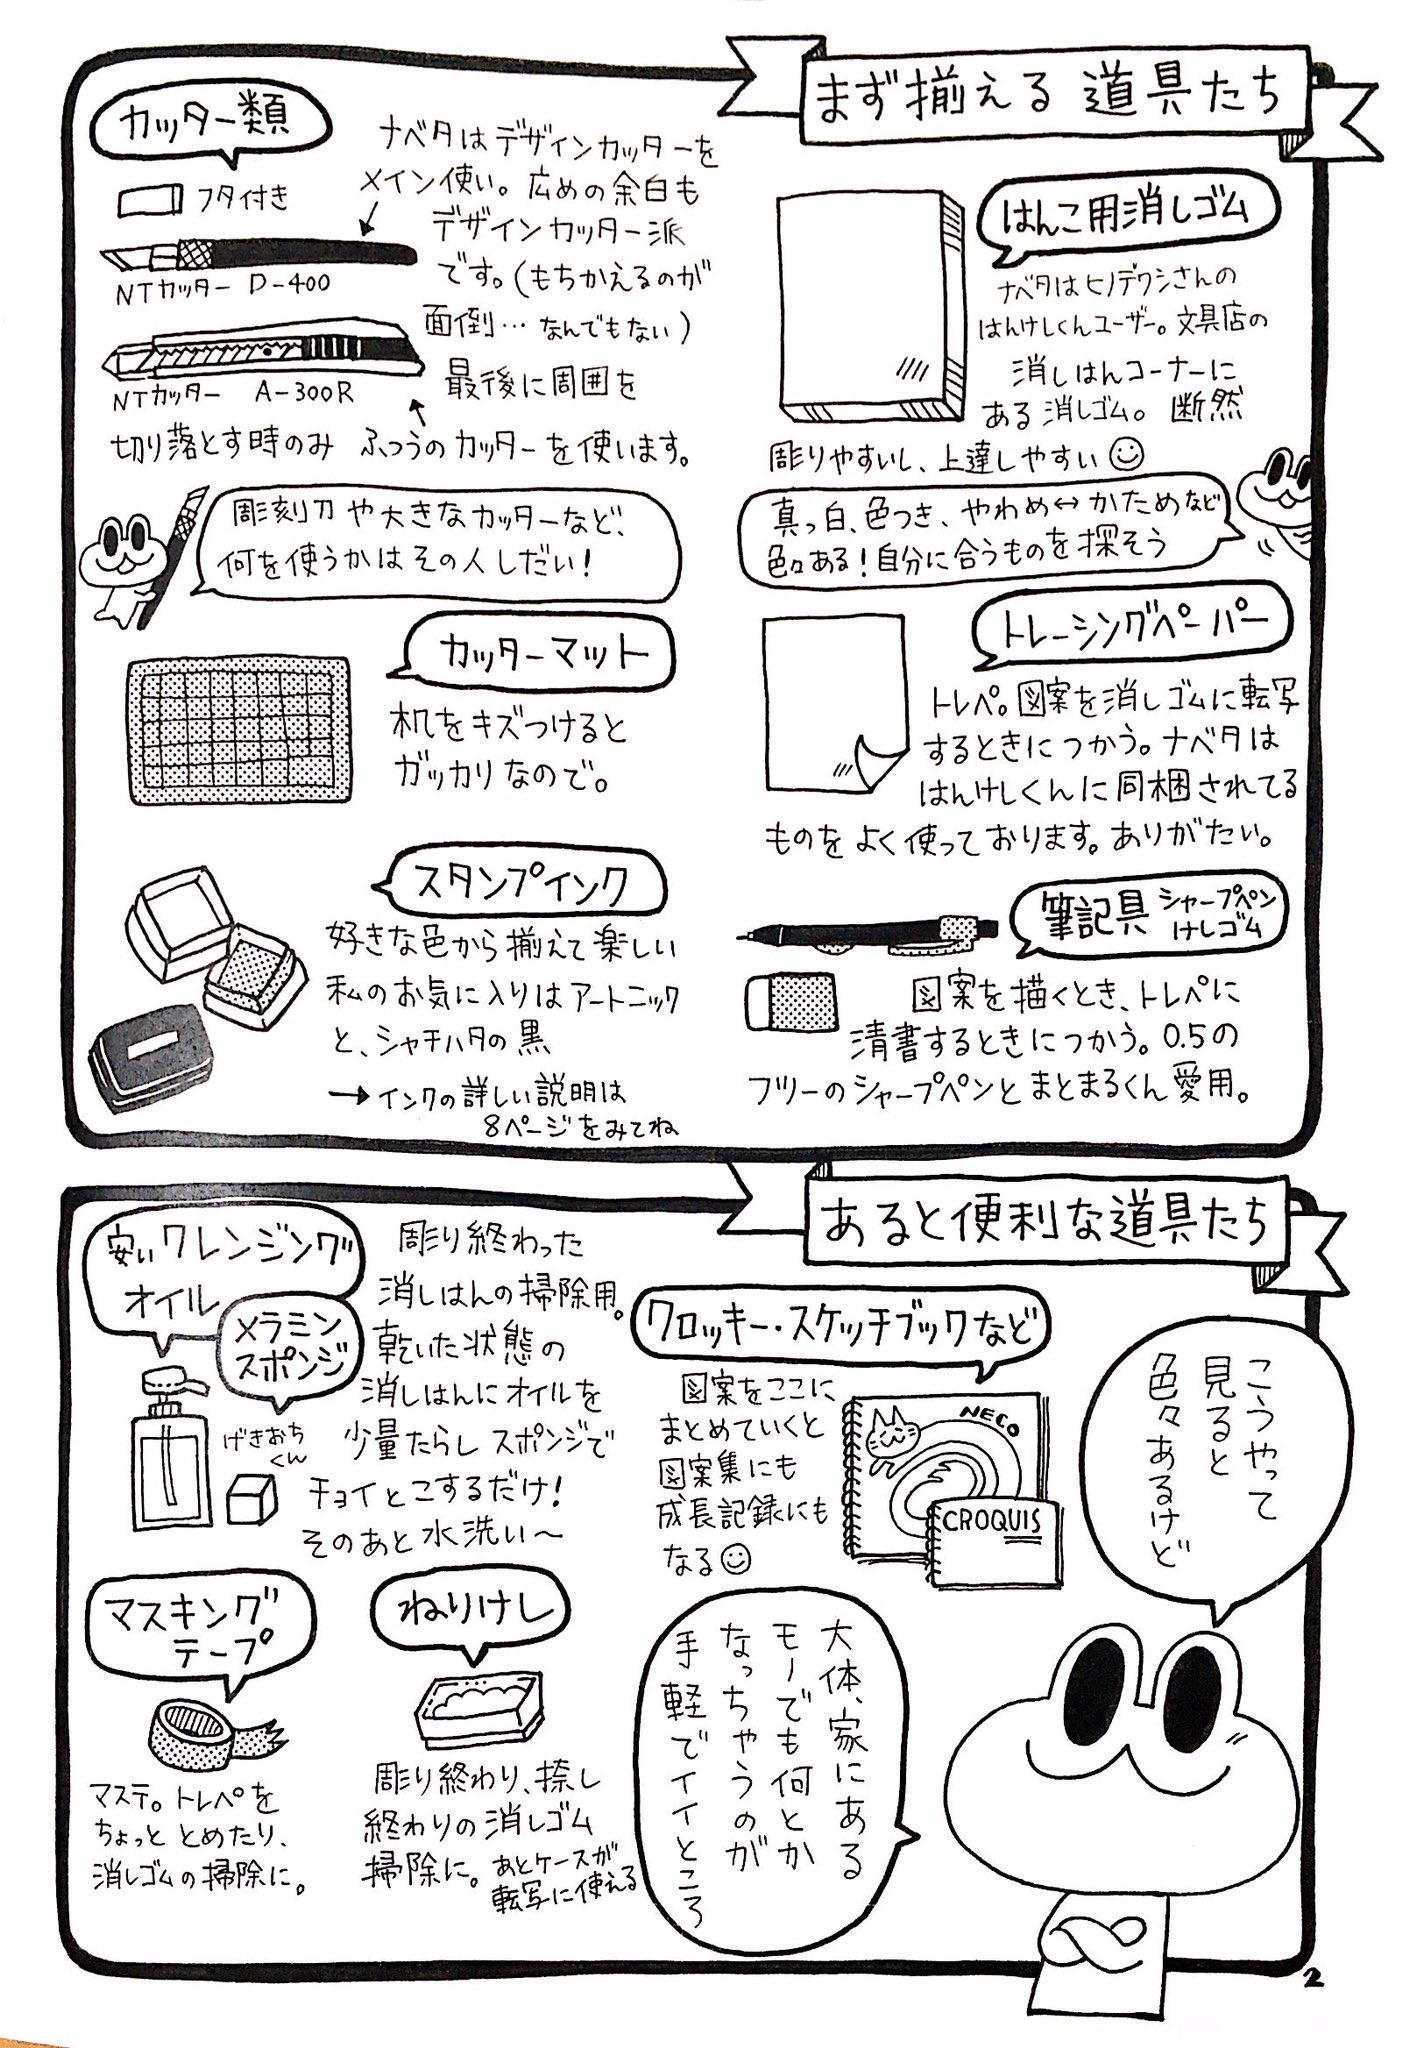 まず揃える道具たち
はんこ用消しゴム
ナベタはヒノデワシさんの
はんけしくんユーザー。文具店の
消しはんコーナーに
ある消しゴム。断然
彫りやすいし、上達しやすい
真っ白、色つき、やわめ↔かためなど
色々ある!自分に合うものを探そう
トレーシングペーパー
トレペ。図案を消しゴムに転写
するときにつかう。ナベタは
はんけしくんに同梱されてる
ものをよく使っております。ありがたい。
筆記具 シャープペン
けしゴム
図案を描くとき、トレペに
清書するときにつかう。0.5の
フツーのシャープペンとまとまるくん愛用。
カッター類
フタ付き
NTカッター D-400
NTカッター A-300R
ナベタはデザインカッターを
メイン使い。広めの余白も
デザインカッター派
です。(もちかえるのが
面倒…なんでもない)
最後に周囲を
切り落とす時のみ ふつうのカッターを使います。
彫刻刀や大きなカッターなど、
何を使うかはその人しだい!
カッターマット
机をキズつけると
ガッカリなので。
スタンプインク
好きな色から揃えて楽しい
私のお気に入りはアートニック
と、シャチハタの黒
→インクの詳しい説明は
8ページをみてね
あると便利な道具たち
安いクレンジング
オイル
メラミン
スポンジ
げきおち
くん
彫り終わった
消しはんの掃除用。
乾いた状態の
消しはんにオイルを
少量たらしスポンジで
チョイとこするだけ!
そのあと水洗い〜
クロッキー・スケッチブックなど
図案をここに
まとめていくと
図案集にも
成長記録にも
なる
NECO
CROQUIS
マスキング
テープ
マステ。トレペを
ちょっととめたり、
消しゴムの掃除に。
ねりけし
彫り終わり、捺し
終わりの消しゴム
掃除に。あとケースが
転写に使える
こうやって
見ると
色々あるけど
大体、家にある
モノでも何とか
なっちゃうのが
手軽でイイところ
2